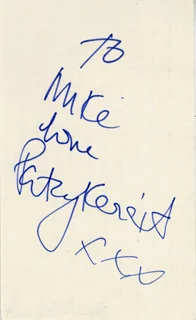 To
Mike
Love
Patsy Kensit
xxx